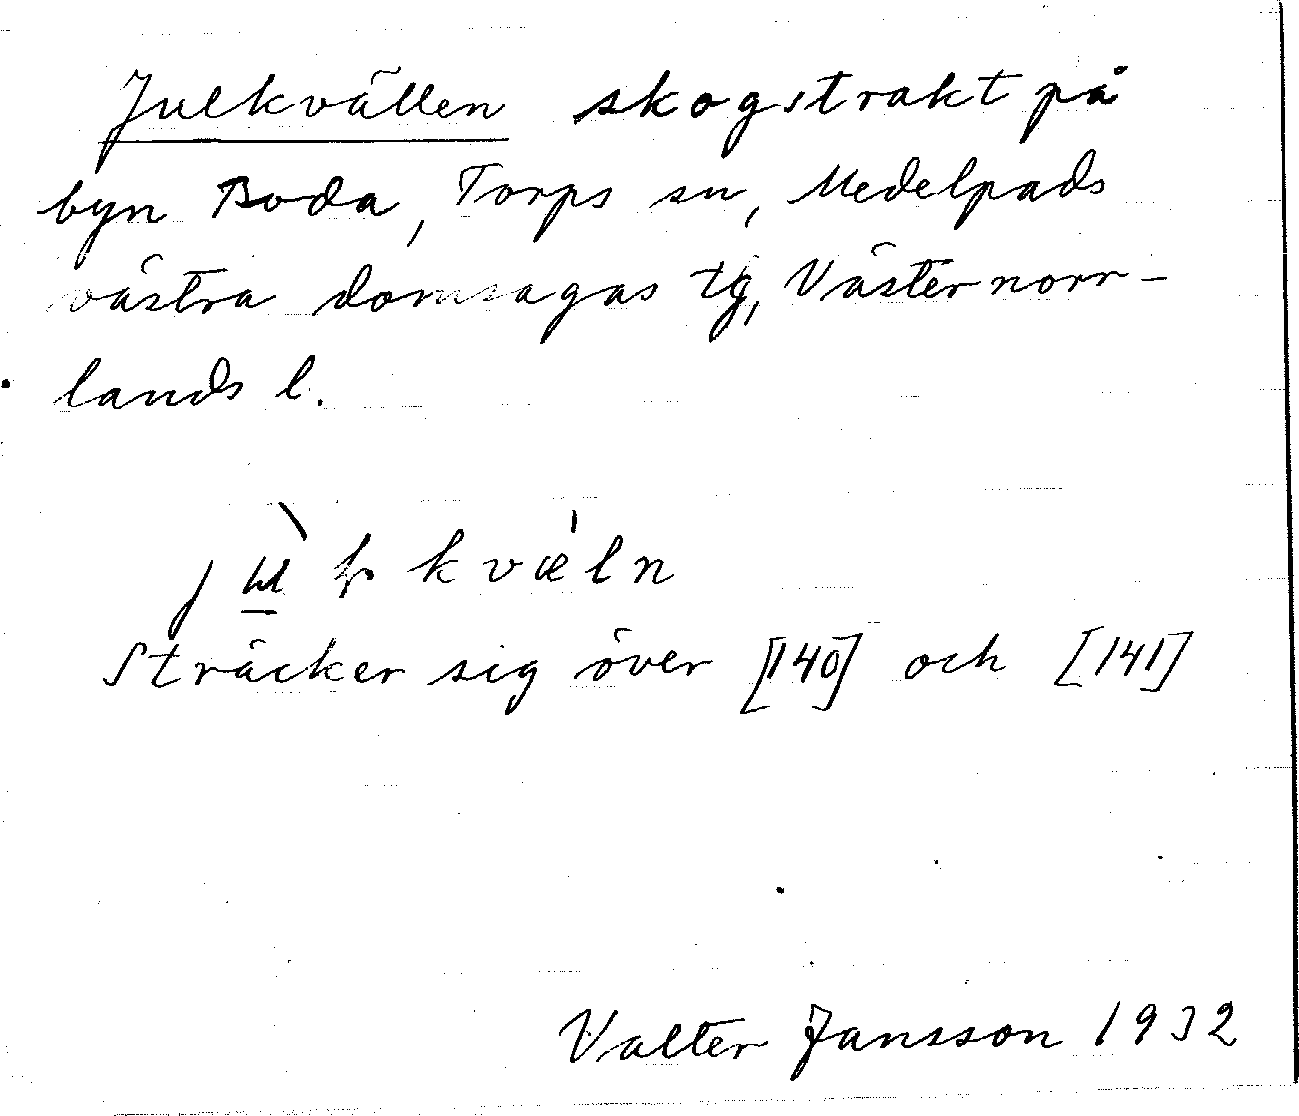 Julkvällen skogstrakt på
byn Boda, Torps sn, Medelpads
västra domsagas tg, Västernorr-
lands l.
kvæ̍ln
Sträcker sig över [140] och [141]
Valter Jansson 1932